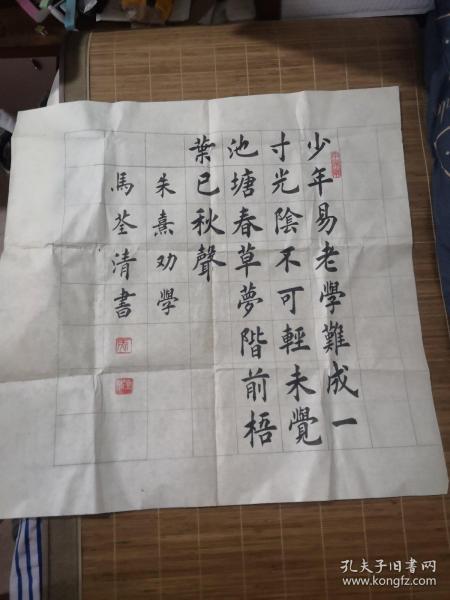 少年易老學難成一
寸光陰不可輕未覺
池塘春草夢階前梧
葉已秋聲
朱熹劝學
馬荃清書
孔夫子旧书网
www.kongfz.com